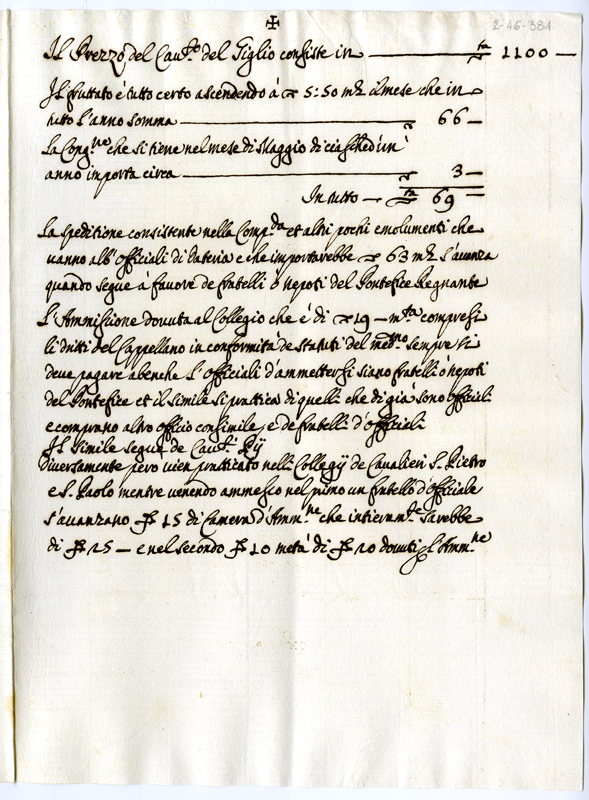 ✠
2-46-381
Il Prezzo del Cau.to del Giglio consiste in — 1100 —
Il fruttato è tutto certo ascendendo à 5:50 m.ta il mese che in
tutto l'anno somma — 66 —
La Cong.ne che si tiene nel mese di Maggio di ciasched'un'
anno importa circa — 3 —
In tutto — 69 —
La speditione consistente nella Comp.da et altri pochi emolumenti che
uanno all'Officiali di Dateria e che importarebbe 63 m.ta l'auanza
quando segue à fauore de fratelli ò nepoti del Pontefice Regnante
L'Ammissione douuta al Collegio che è di 19 — m.ta compresi
li dritti del Cappellano in conformità de statuti del med.mo sempre si
deue pagare abenche l'Officiali d'ammettersi siano fratelli ò nepoti
del Pontefice et il simile si prattica di quelli che di già sono officiali
e comprano altro officio consimile, e de fratelli d'officiali
Il Simile segue de Cau.ri Pij
Diuersamente però uien pratticato nelli Collegij de Caualieri S. Pietro
e S. Paolo mentre uenendo ammesso nel primo un fratello d'officiale
s'auanzano 15 di Camera d'Amm.ne che intieram.te sarebbe
di 25 — e nel secondo 10 metà di 20 douuti p l'Amm.ne